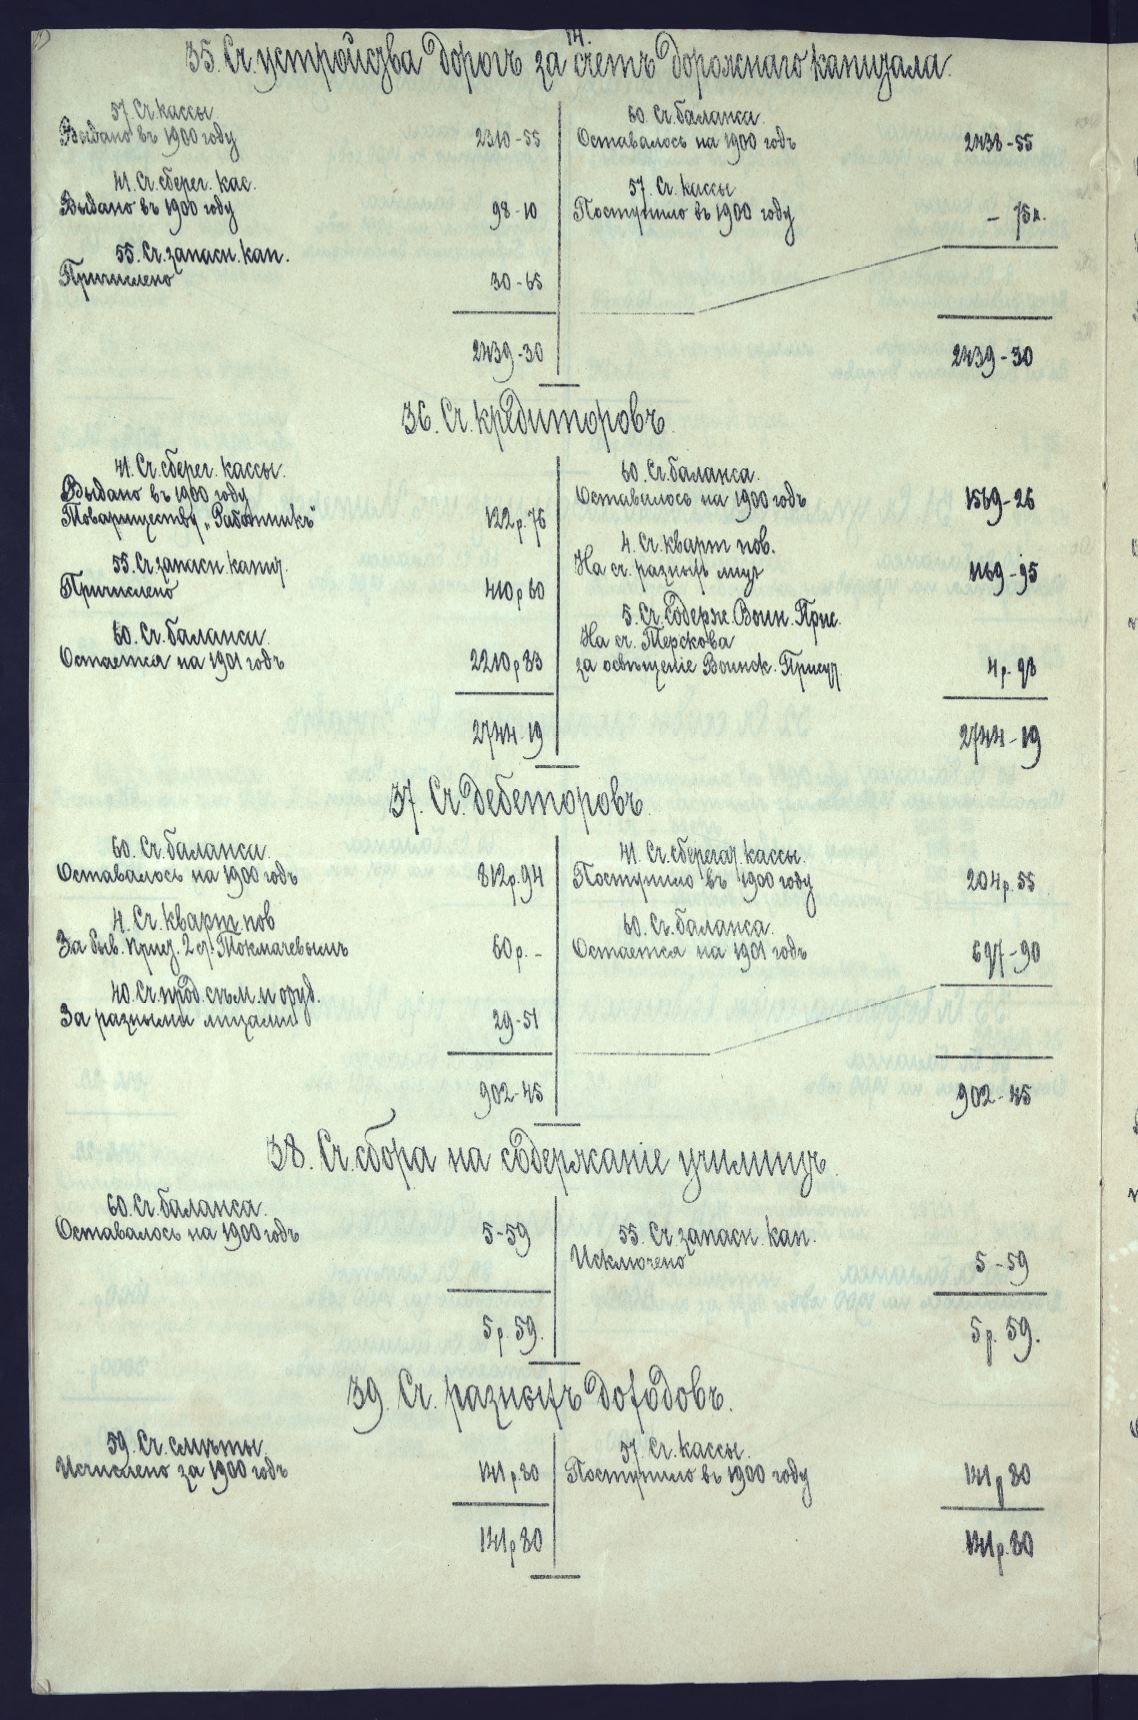 14.
35. Сч. устройства дорогъ за счетъ дорожнаго капитала.
57 Сч. кассы
Выдано въ 1900 году 2310-55
41. Сч. сберег. кас.
Выдано въ 1900 году 98-10
55. Сч. запасн. кап.
Причислено 30-65
2439-30
60. Сч. баланса.
Оставалось на 1900 годъ 2438-55
57. Сч. кассы
Поступило въ 1900 году — 75к.
2439-30
36. Сч. кредиторовъ.
41. Сч. сберег. кассы.
Выдано въ 1900 году
Товариществу „Работникъ" 122 р. 76
55. Сч. запасн. капит.
Причислено 410 р 60
60. Сч. баланса.
Остается на 1901 годъ 2210 р 83
2744-19
60. Сч. баланса.
Оставалось на 1900 годъ 1569-26
4. Сч. кварт. пов.
На сч. разныхъ лицъ 1169-95
5. Сч. Содерж. Воин. Прис.
На сч. Терскова
за освѣщеніе Воинск. Присут. 4 р. 98
2744-19
37. Сч. дебеторовъ.
60. Сч. баланса.
Оставалось на 1900 годъ 812 р. 94
4. Сч. кварт. пов
За быв. Приз. 2 ст. Токмачевымъ 60 р. -
40. Сч. прод. сѣм. и оруд.
За разными лицами 29-51
902-45
41. Сч. сберегат. кассы.
Поступило въ 1900 году 204 р. 55
60. Сч. баланса.
Остается на 1901 годъ 697-90
902-45
38. Сч. сбора на содержаніе училищъ.
60. Сч. баланса.
Оставалось на 1900 годъ 5-59
5 р. 59.
55. Сч. запасн. кап.
Исключено 5-59
5 р. 59.
39. Сч. разныхъ доходовъ.
59. Сч. смѣты.
Исчислено за 1900 годъ 141 р. 80
141 р 80
57. Сч. кассы.
Поступило въ 1900 году 141 р 80
141 р. 80